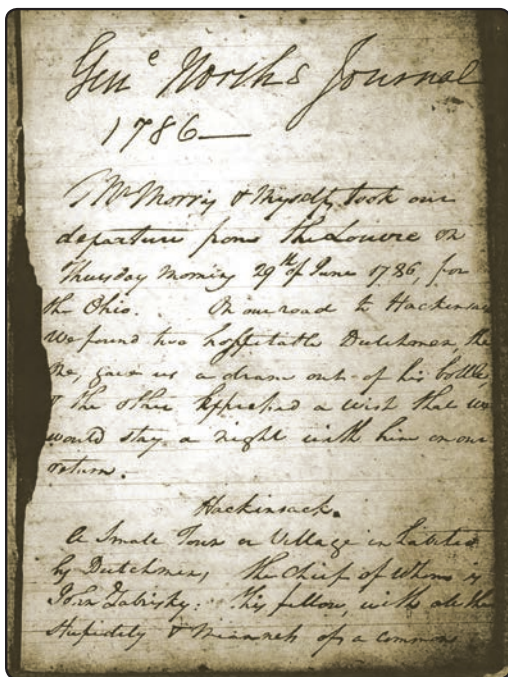 Gen^e North's Journal
1786—
Mr Morris & Myself, took our
departure from the Louvre on
Thursday Morning 29th of June 1786, for
the Ohio. On our road to Hackinsac
We found two hospitable Dutchmen, the
One, gave us a dram out of his bottle,
& the other Expressed a wish that we
would stay a night with him on our
return.
Hackinsack.
A Small Town or Village inhabited
by Dutchmen, the Chief of Whom is
John Zabrisky. This fellow, with all the
Stupidity & Meanness of a common